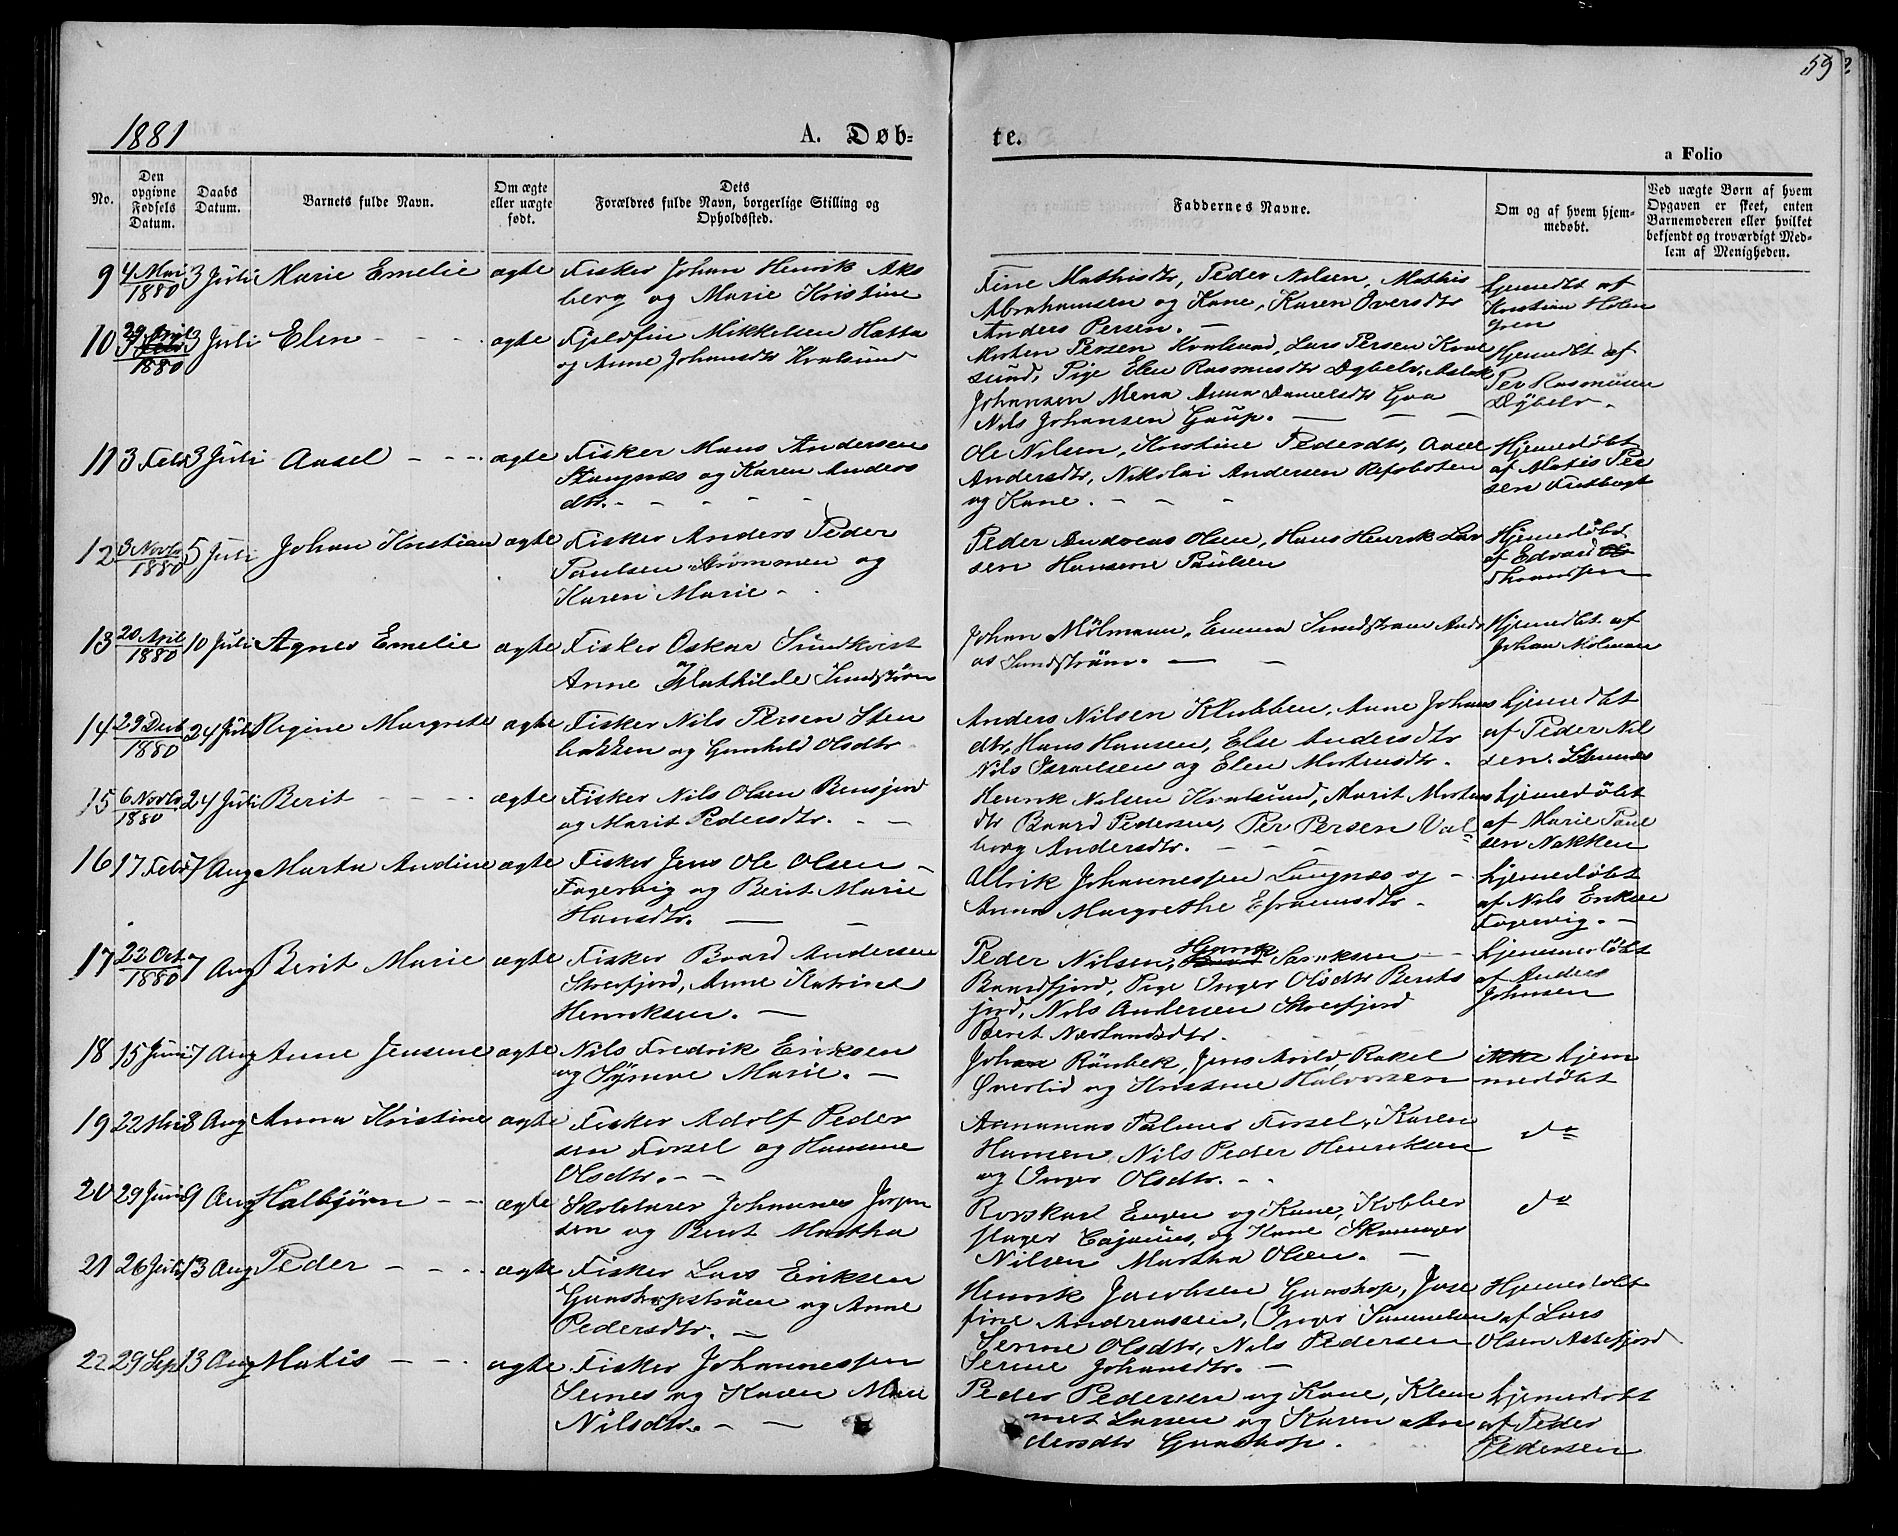 59
1881
A. Døb-
te.
a Folio
No.
Den opgivne Fødsels Datum.
Daabs Datum.
Barnets fulde Navn.
Om ægte eller uægte født.
Dets Forældres fulde Navn, borgerlige Stilling og Opholdssted.
Faddernes Navne.
Om og af hvem hjemmedøbt.
Ved uægte Børn af hvem Opgaven er skeet, enten Barnemoderen eller hvilket bekjendt og troværdigt Medlem af Menigheden.
9 4 Mai 1880 3 Juli Marie Emelie ægte Fisker Johan Henrik Aks
berg og Marie Kristine
Fine Mathisdtr, Peder Nilsen, Mathis
Abrahamsen og Kone, Karen Iversdtr
Anders Persen. —
hjemdbt af
Kristian Holm
gren
10 29 April 1880 3 Juli Elen - - - ægte Fjeldfin Mikkelsen Hætta
og Anne Johansdtr Kvalsund
Morten Persen Kvalsund, Lars Persen Kval
sund, Pige Elen Rasmusdtr Dybelv, Aslak
Johansen Mena Anna Danielsdtr Goa
Nils Johansen Gaup. — — —
Hjemdbt af
Per Rasmusen
Dybelv.
11 3 Febr 3 Juli Aasel - - - ægte Fisker Hans Andersen
Stangnæs og Karen Anders
dtr. - - - -
Ole Nilsen, Kristine Pedersdtr, Aasel
Andersdtr, Nikolai Andersen Refsbotn
og Kone. - - -
Hjemedøbt
af Matis Per
sen
12 3 Novbr 1880 5 Juli Johan Kristian ægte Fisker Anders Peder
Paulsen Strømmen og
Karen Marie - .
Peder Andreas Olsen, Hans Henrik Lar
sen Hansene Paulsen
Hjemedøbt
af Edvard
13 20 April 1880 10 Juli Agnes Emelie ægte Fisker Oskar Sundkvist
og
Anne Mathilde Sundstrøm
Johan Mölmann, Emma Sundstrøm Andr
as Sundstrøm. — —
Hjemdbt af
Johan Molman
14 29 Decb 1880 24 Juli Regine Margrete ægte Fisker Nils Persen Sten
bakken og Gunhild Olsdtr
Anders Nilsen Klubben, Anne Johans
dtr, Hans Hansen, Else Andersdtr
Nils Israelsen og Elen Mortensdtr.
hjemdbt
af Peder Nil
sen.
15 6 Novbr 1880 24 Juli Berit - - - - ægte Fisker Nils Olsen Bensjord
og Marit Pedersdtr. - -
Henrik Nilsen Kvalsund, Marit Mortens
dtr Baard Pedersen, Per Persen Val-
borg Andersdtr. - - -
hjemedøbt
af Marie Paul
sen Nakken
16 17 Febr 7 Aug Marta Andine ægte Fisker Jens Ole Olsen -
Fagervig og Berit Marie
Hansdtr. — —
Albrik Johannessen Langnæs og -
Anna Margrethe Efraimsdtr.
hjemedøbt
af Nils Eriksen
Fagervig. -
17 22 Oct 1880 7 Aug Berit Marie ægte Fisker Baard Andersen
Store­fjord, Anne Katrine
Henriksen. —
Peder Nilsen, Henrik Isaksen -
Baardfjord, Pige Inger Olsdtr Berits
jord, Nils Andersen Storefjord
Berit Nærlandsdtr.
hjemmedøbt
af Anders
Johnsen
18 15 Juni 7 Aug Anne Jensine ægte Nils Fredrik Eriksen
og Synove Marie. -
Johan Rönbek, Jens Arild, Rakel
Qvertid og Kristine Halvorsen
ikke hjem
medøbt
19 22 Mai 8 Aug Anna Kristine ægte Fisker Adolf Peder
sen Forsel og Hansine
Olsdtr. - -
Ananias Palmer Forsel, Karen
Hansen, Nils Peder Henriksen
og Inger Olsdtr. - -
do
20 29 Juni 9 Aug Halbjørn - - ægte Skolelærer Johannes Jørgen
sen og Berit Martha
Rorskarl Engen og Kone, Kobber
slager Cajanus, og Kone Skomager
Nilsen Martha Olsen. —
do
21 26 Juli 13 Aug Peder - - - ægte Fisker Lars Eriksen
Gaashopstrøm og Anne
Pedersdtr. -
Henrik Jacobsen Gaashop, Jose
fine Andreassen, Inger Samuelsen
Serine Olsdtr, Nils Pedersen
Serine Johansdtr. -
Hjemedøbt
af Lars
Olsen Astefjord
22 29 Sept 13 Aug Matis - - - ægte Fisker Johannessen
Seines og Karen Marie
Nilsdtr. - —
Peder Pedersen og Kone, Klem
met Larsen og Karen An
dersdtr Gaashop.
hjemedøbt
af Peder
Pedersen